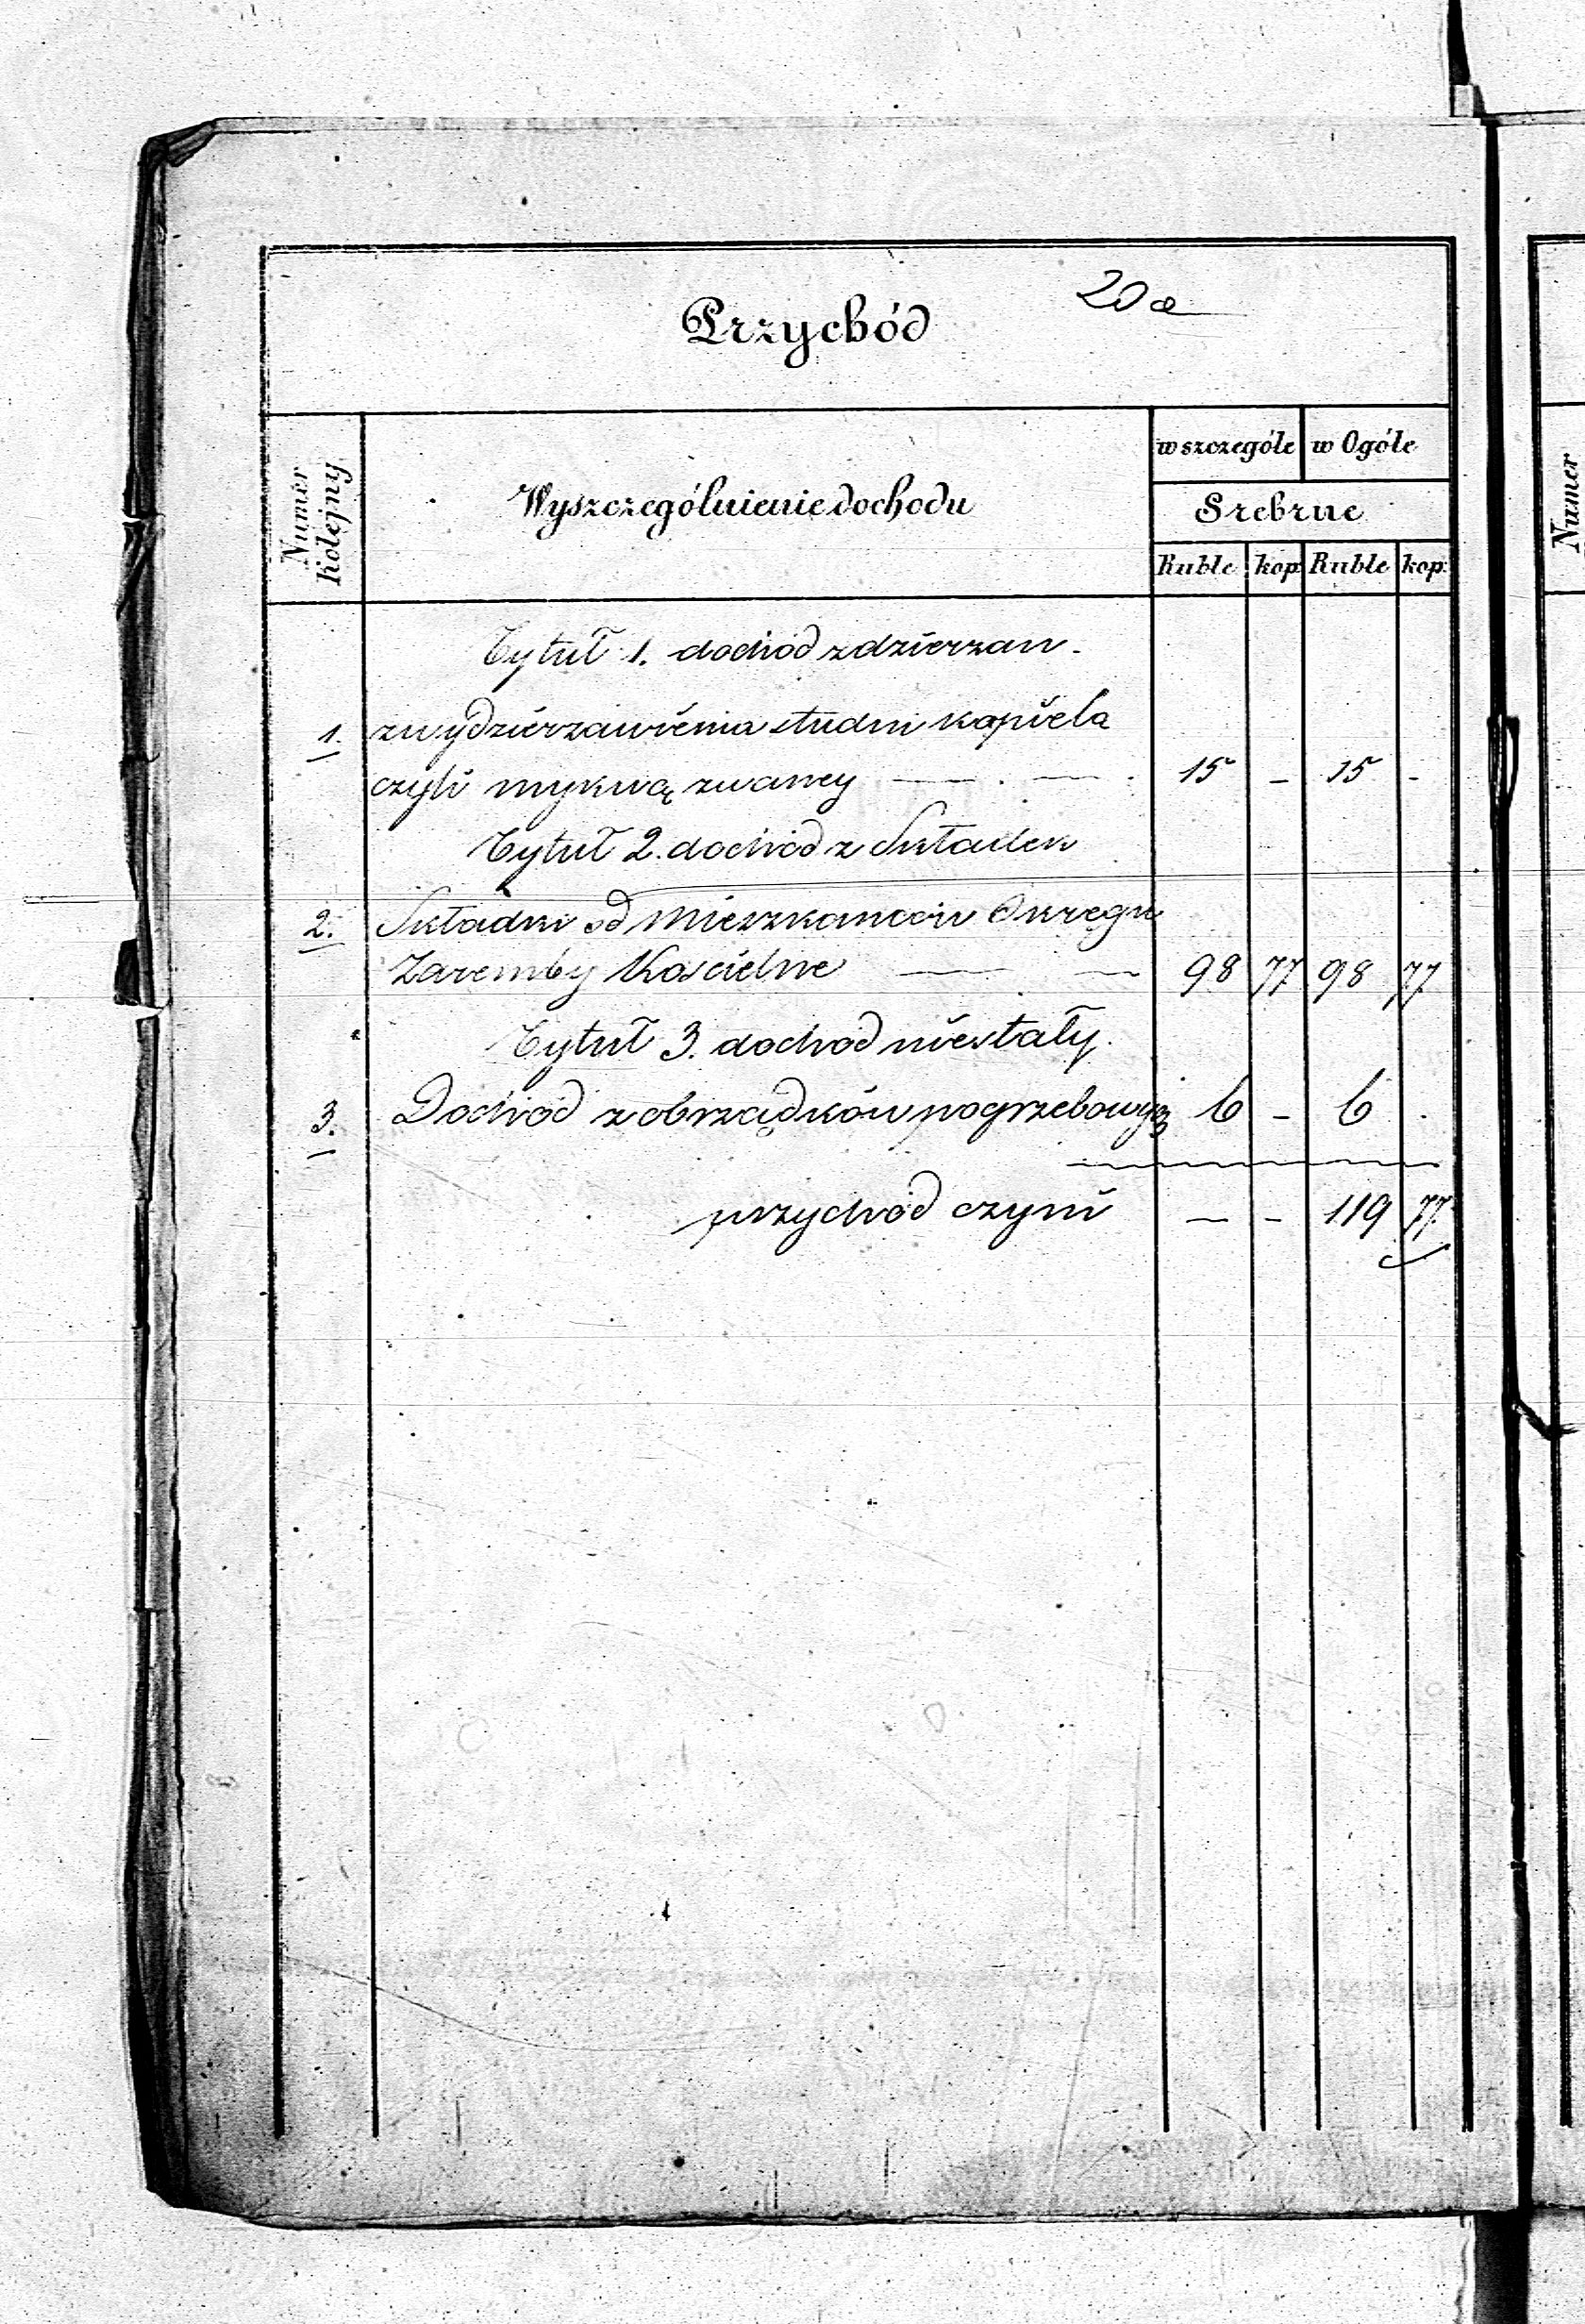 20a
Przychód
Numer Kolejny
Wyszczególnienie dochodu
w szczególe w Ogóle
Srebrne
Ruble kop Ruble kop:
Tytuł 1. dochód z dzierzaw.
1. z wydzierzawienia studni kąpiela
czyli mykwą zwaney — . — . 15 - 15 -
Tytuł 2. dochód z Składek
2. Składki od Mieszkancow Okręgu
Zaremby Koscielne — — 98 77 98 77
Tytuł 3. dochod niestały.
3. Dochód z obrządków pogrzebowy 6 - 6 .
przychód czyni — - 119 77
Numer